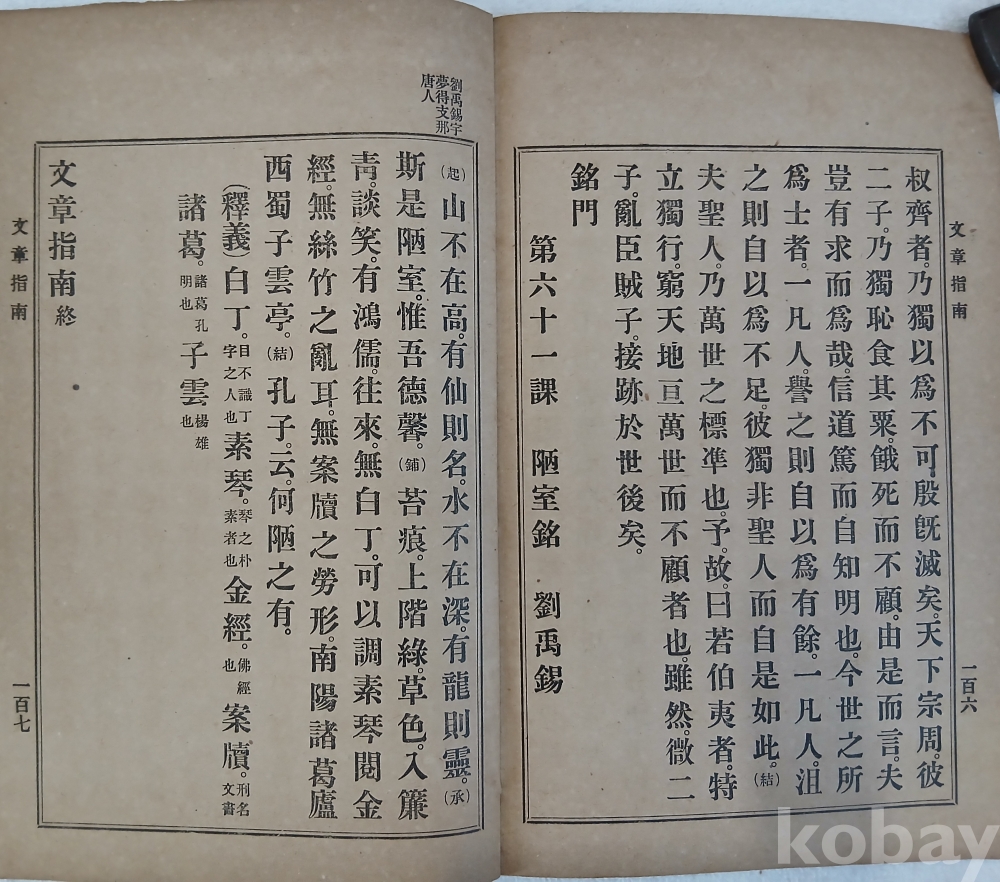 文章指南
一百六
叔齊者。乃獨以爲不可。殷旣滅矣。天下宗周。彼
二子。乃獨恥食其粟。餓死而不顧。由是而言。夫
豈有求而爲哉。信道篤而自知明也。今世之所
爲士者。一凡人。譽之則自以爲有餘。一凡人。沮
之則自以爲不足。彼獨非聖人而自是如此。(結)
夫聖人。乃萬世之標準也。予。故。曰若伯夷者。特
立獨行。窮天地亘萬世而不顧者也。雖然。微二
子。亂臣賊子。接跡於世後矣。
銘門
第六十一課 陋室銘 劉禹錫
劉禹錫字
夢得支那
唐人
(起)山不在高。有仙則名。水不在深。有龍則靈。(承)
斯是陋室。惟吾德馨。(鋪)苔痕。上階綠。草色。入簾
靑。談笑。有鴻儒。往來。無白丁。可以調素琴閱金
經。無絲竹之亂耳。無案牘之勞形。南陽諸葛廬
西蜀子雲亭。(結)孔子。云。何陋之有。
(釋義)白丁。目不識丁字之人也素琴。琴之朴素者也金經。佛經也案牘。刑名文書
諸葛。諸葛孔明也子雲楊雄也
文章指南終
文章指南
一百七
kobay